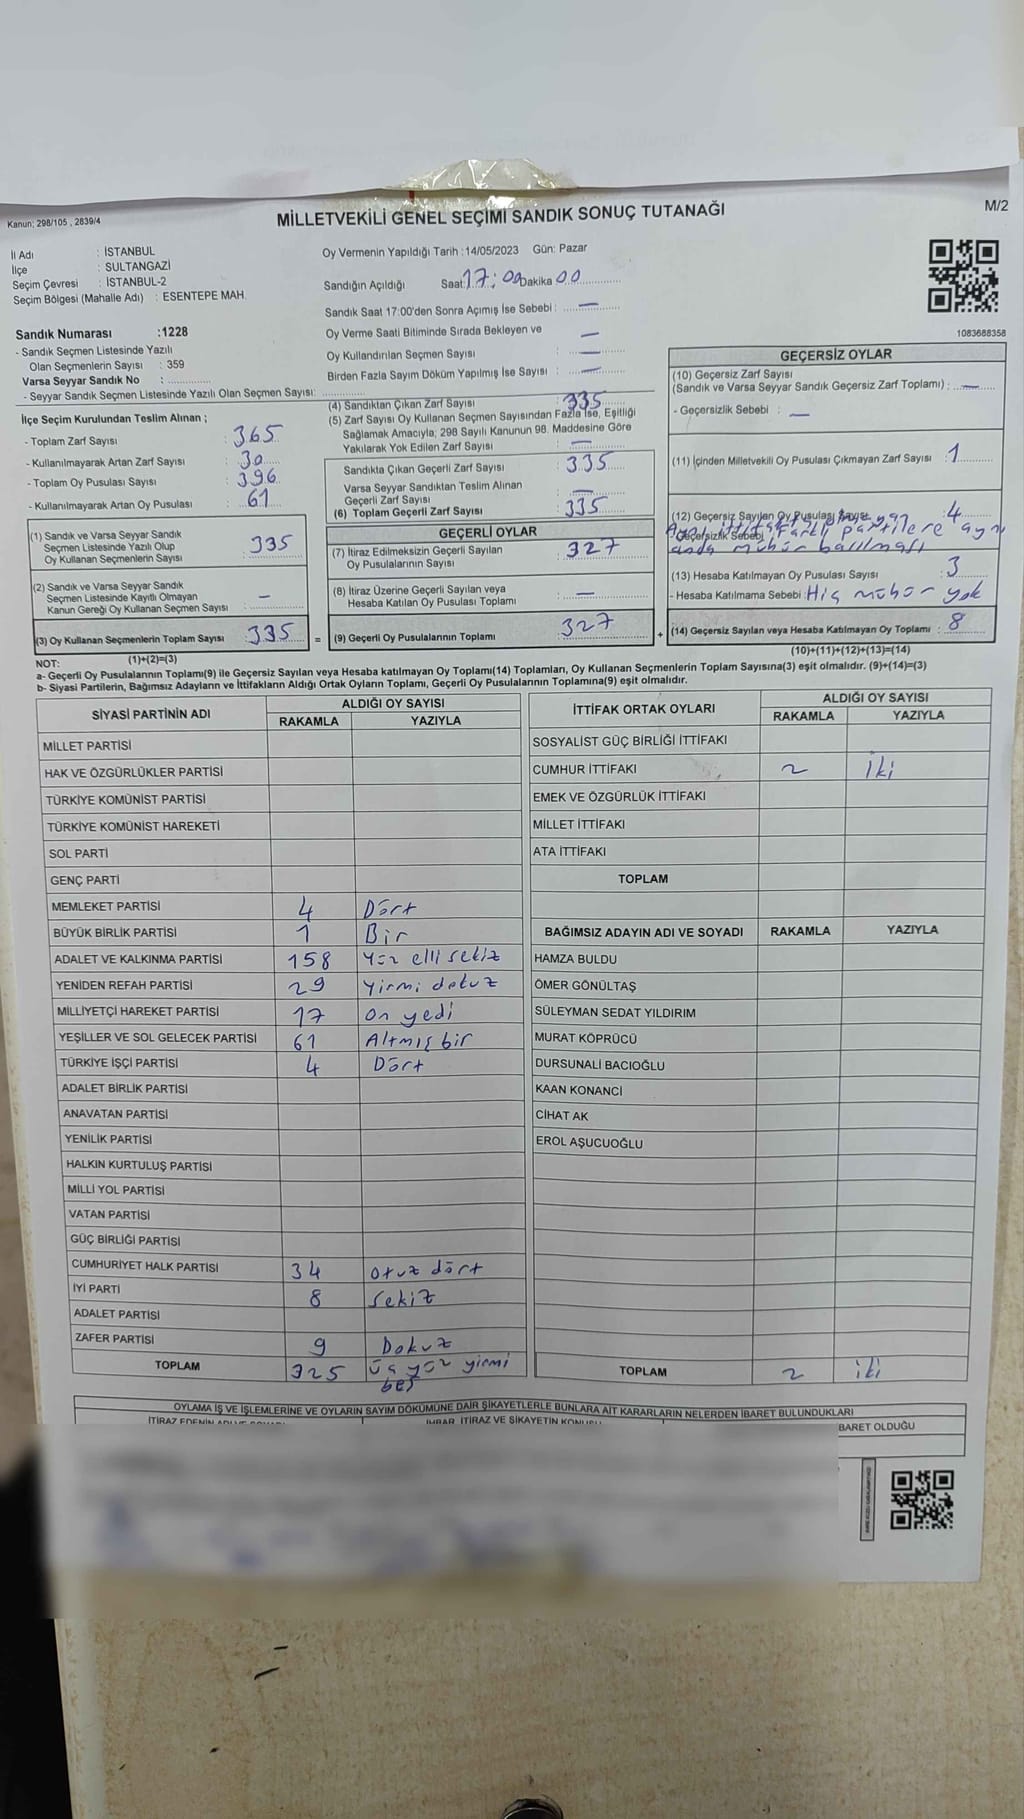 Kanun; 298/105 , 2839/4
MİLLETVEKİLİ GENEL SEÇİMİ SANDIK SONUÇ TUTANAĞI
M/2
İl Adı : İSTANBUL
İlçe : SULTANGAZİ
Seçim Çevresi : İSTANBUL-2
Seçim Bölgesi (Mahalle Adı) : ESENTEPE MAH.
Sandık Numarası :1228
- Sandık Seçmen Listesinde Yazılı
Olan Seçmenlerin Sayısı : 359
Varsa Seyyar Sandık No :
- Seyyar Sandık Seçmen Listesinde Yazılı Olan Seçmen Sayısı:
Oy Vermenin Yapıldığı Tarih :14/05/2023 Gün: Pazar
Sandığın Açıldığı Saat 17:00 Dakika 00
Sandık Saat 17:00'den Sonra Açımış İse Sebebi : —
Oy Verme Saati Bitiminde Sırada Bekleyen ve —
Oy Kullandırılan Seçmen Sayısı : —
Birden Fazla Sayım Döküm Yapılmış İse Sayısı : —
1083688358
İlçe Seçim Kurulundan Teslim Alınan ;
- Toplam Zarf Sayısı : 365
- Kullanılmayarak Artan Zarf Sayısı : 30
- Toplam Oy Pusulası Sayısı : 396
- Kullanılmayarak Artan Oy Pusulası : 61
(1) Sandık ve Varsa Seyyar Sandık
Seçmen Listesinde Yazılı Olup
Oy Kullanan Seçmenlerin Sayısı : 335
(2) Sandık ve Varsa Seyyar Sandık
Seçmen Listesinde Kayıtlı Olmayan
Kanun Gereği Oy Kullanan Seçmen Sayısı : —
(3) Oy Kullanan Seçmenlerin Toplam Sayısı : 335 =
(4) Sandıktan Çıkan Zarf Sayısı : 335
(5) Zarf Sayısı Oy Kullanan Seçmen Sayısından Fazla İse, Eşitliği
Sağlamak Amacıyla; 298 Sayılı Kanunun 98. Maddesine Göre
Yakılarak Yok Edilen Zarf Sayısı : —
Sandıkta Çıkan Geçerli Zarf Sayısı : 335
Varsa Seyyar Sandıktan Teslim Alınan
Geçerli Zarf Sayısı : —
(6) Toplam Geçerli Zarf Sayısı : 335
GEÇERLİ OYLAR
(7) İtiraz Edilmeksizin Geçerli Sayılan
Oy Pusulalarının Sayısı : 327
(8) İtiraz Üzerine Geçerli Sayılan veya
Hesaba Katılan Oy Pusulası Toplamı : —
(9) Geçerli Oy Pusulalarının Toplamı : 327 +
GEÇERSİZ OYLAR
(10) Geçersiz Zarf Sayısı
(Sandık ve Varsa Seyyar Sandık Geçersiz Zarf Toplamı) : —
- Geçersizlik Sebebi : —
(11) İçinden Milletvekili Oy Pusulası Çıkmayan Zarf Sayısı : 1
(12) Geçersiz Sayılan Oy Pusulası Sayısı : 4
- Geçersizlik Sebebi : farklı partilere aynı
anda mühür basılması
(13) Hesaba Katılmayan Oy Pusulası Sayısı : 3
- Hesaba Katılmama Sebebi : Hiç mühür yok
(14) Geçersiz Sayılan veya Hesaba Katılmayan Oy Toplamı : 8
(10)+(11)+(12)+(13)=(14)
NOT: (1)+(2)=(3)
a- Geçerli Oy Pusulalarının Toplamı(9) ile Geçersiz Sayılan veya Hesaba katılmayan Oy Toplamı(14) Toplamları, Oy Kullanan Seçmenlerin Toplam Sayısına(3) eşit olmalıdır. (9)+(14)=(3)
b- Siyasi Partilerin, Bağımsız Adayların ve İttifakların Aldığı Ortak Oyların Toplamı, Geçerli Oy Pusulalarının Toplamına(9) eşit olmalıdır.
SİYASİ PARTİNİN ADI ALDIĞI OY SAYISI
RAKAMLA YAZIYLA
MİLLET PARTİSİ
HAK VE ÖZGÜRLÜKLER PARTİSİ
TÜRKİYE KOMÜNİST PARTİSİ
TÜRKİYE KOMÜNİST HAREKETİ
SOL PARTİ
GENÇ PARTİ
MEMLEKET PARTİSİ 4 Dört
BÜYÜK BİRLİK PARTİSİ 1 Bir
ADALET VE KALKINMA PARTİSİ 158 Yüz elli sekiz
YENİDEN REFAH PARTİSİ 29 Yirmi dokuz
MİLLİYETÇİ HAREKET PARTİSİ 17 On yedi
YEŞİLLER VE SOL GELECEK PARTİSİ 61 Altmış bir
TÜRKİYE İŞÇİ PARTİSİ 4 Dört
ADALET BİRLİK PARTİSİ
ANAVATAN PARTİSİ
YENİLİK PARTİSİ
HALKIN KURTULUŞ PARTİSİ
MİLLİ YOL PARTİSİ
VATAN PARTİSİ
GÜÇ BİRLİĞİ PARTİSİ
CUMHURİYET HALK PARTİSİ 34 Otuz dört
İYİ PARTİ 8 Sekiz
ADALET PARTİSİ
ZAFER PARTİSİ 9 Dokuz
TOPLAM 325 Üç yüz yirmi
beş
İTTİFAK ORTAK OYLARI ALDIĞI OY SAYISI
RAKAMLA YAZIYLA
SOSYALİST GÜÇ BİRLİĞİ İTTİFAKI
CUMHUR İTTİFAKI 2 İki
EMEK VE ÖZGÜRLÜK İTTİFAKI
MİLLET İTTİFAKI
ATA İTTİFAKI
TOPLAM
BAĞIMSIZ ADAYIN ADI VE SOYADI RAKAMLA YAZIYLA
HAMZA BULDU
ÖMER GÖNÜLTAŞ
SÜLEYMAN SEDAT YILDIRIM
MURAT KÖPRÜCÜ
DURSUNALİ BACIOĞLU
KAAN KONANCİ
CİHAT AK
EROL AŞUCUOĞLU
TOPLAM 2 iki
OYLAMA İŞ VE İŞLEMLERİNE VE OYLARIN SAYIM DÖKÜMÜNE DAİR ŞİKAYETLERLE BUNLARA AİT KARARLARIN NELERDEN İBARET BULUNDUKLARI
İTİRAZ EDENİN İHBAR, İTİRAZ VE ŞİKAYETİN KONUSU BARET OLDUĞU